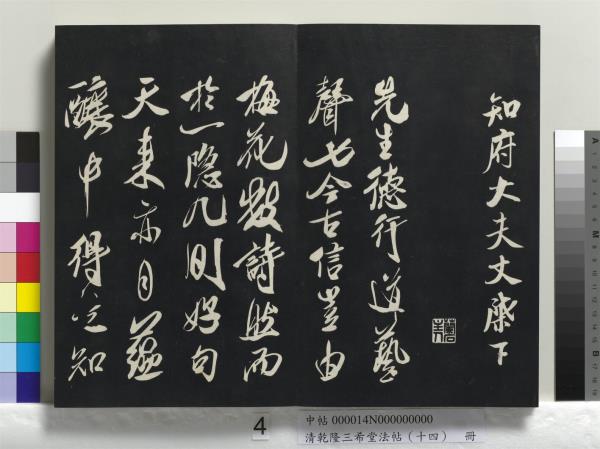 知府大夫丈席下
先生德行道藝
聲七今古信豈由
梅花數詩然而
於一隱几則好句
天來亦目蘊
釀中得之知
4
中帖 000014N000000000
清乾隆三希堂法帖（十四） 冊